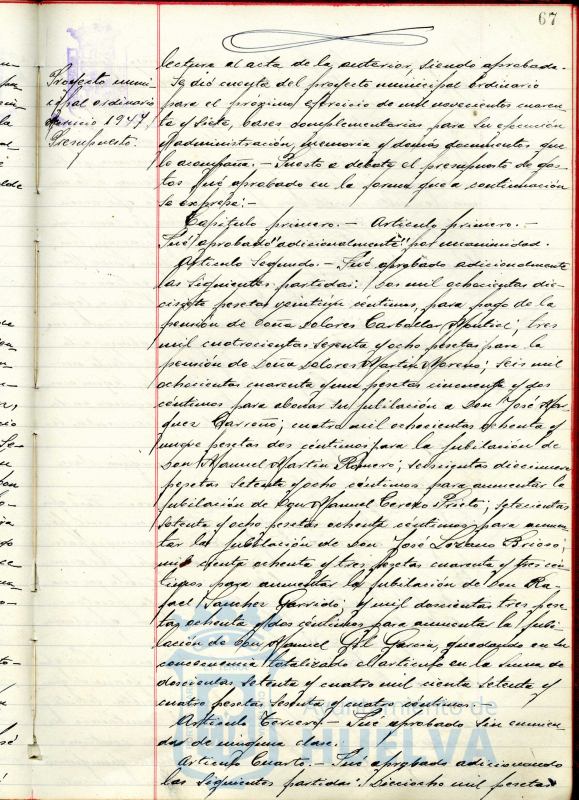 67
lectura al acta de la anterior, siendo aprobada.
Proyecto muni-
cipal ordinario
ejercicio 1947.
Presupuesto.
Se dió cuenta del proyecto municipal ordinario
para el próximo ejercicio de mil novecientos cuaren-
ta y siete, bases complementarias para su ejecución
y administración, memoria y demás documentos que
le acompaña.- Puesto a debate el presupuesto de gas-
tos fué aprobado en la forma que a continuación
se expresa:-
Capítulo primero.- Artículo primero.-
Fué aprobado "adicionalmente" por unanimidad.
Artículo Segundo.- Fué aprobado adicionalmente
las siguientes partidas: Dos mil ochocientas die-
cisiete pesetas veintiun céntimos, para pago de la
pensión de Doña Dolores Carballar; tres
mil cuatrocientas sesenta y ocho pesetas para la
pensión de Doña Dolores Martín Moreno; seis mil
ochocientas cuarenta y una pesetas cincuenta y dos
céntimos para abonar su jubilación a Don José Mar-
quez Carreño; cuatro mil ochocientas ochenta y
nueve pesetas dos céntimos para la jubilación de
Don Manuel Martín Romero; seiscientas diecinueve
pesetas setenta y ocho céntimos para aumentar la
jubilación de Don Manuel Cerezo Prieto; setecientas
setenta y ocho pesetas ochenta céntimos para aumen-
tar la jubilación de Don José Lozano Brioso;
mil ochenta y tres pesetas cuarenta y tres cén-
timos para aumentar la jubilación de Don Ra-
fael Sanchez Garrido; y mil doscientas tres pese-
tas ochenta y dos céntimos para aumentar la jubi-
lación de Don Manuel Gil García, quedando en su
consecuencia totalizado el artículo en la suma de
doscientas setenta y cuatro mil ciento setenta y
cuatro pesetas sesenta y cuatro céntimos.
Artículo Tercero.- Fué aprobado sin enmien-
das de ninguna clase.
Artículo Cuarto.- Fué aprobado adicionando
las siguientes partidas: Dieciocho mil pesetas
Ayuntamiento de
HUELVA